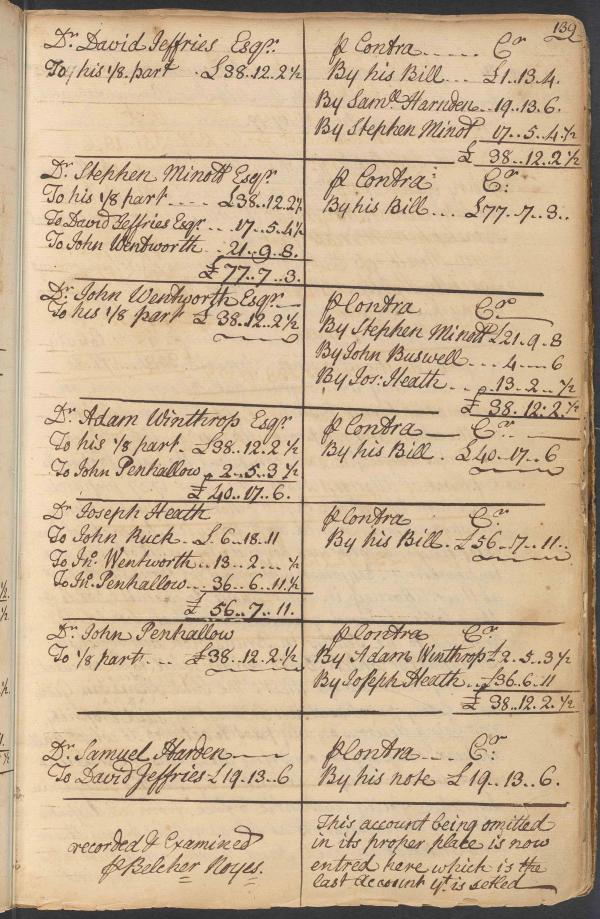 139
Dr. David Jeffries Esqr.
To his 1/8 part . £38..12..2½
⅌ Contra..... Cr
By his Bill... £1..13.4.
By Samll Harnden..19..13..6.
By Stephen Minot 17..5..4.½
£ 38..12..2½
Dr. Stephen Minott Esqr.
To his 1/8 part.... £38..12.2½
To David Jeffries Esqr... 17..5.4½
To John Wentworth.. 21..9..8.
£ 77..7..3.
⅌ Contra: Cr:
By his Bill... £77..7..3..
Dr. John Wentworth Esqr.
To his 1/8 part £ 38..12..2½
⅌ Contra Cr
By Stephen Minott £21..9..8
By John Buswell... 4....6
By Jos: Heath... 13..2..½
£ 38..12:.2.½
Dr. Adam Winthrop Esqr.
To his 1/8 part. £38..12..2½
To John Penhallow. 2..5..3½
£ 40..17..6.
⅌ Contra Cr:
By his Bill. £40..17..6
Dr Joseph Heath
To John Ruck £. 6..18..11
To Jno. Wentworth..13..2...½
To Jno. Penhallow... 36..6..11.½
£ 56..7..11.
⅌ Contra Cr:
By his Bill. £56..7..11..
Dr. John Penhallow
To 1/8 part... £38..12..2½
⅌ Contra Cr
By Adam Winthrop £2..5..3½
By Joseph Heath...£36..6..11
£ 38..12.2.½
Dr. Samuel Harden
To David Jeffries £19..13..6
⅌ Contra.... Cr:
By his note £19..13..6.
recorded & Examined
⅌ Belcher Noyes.
This account being omitted
in its proper place is now
entred here which is the
last account yt. is setled